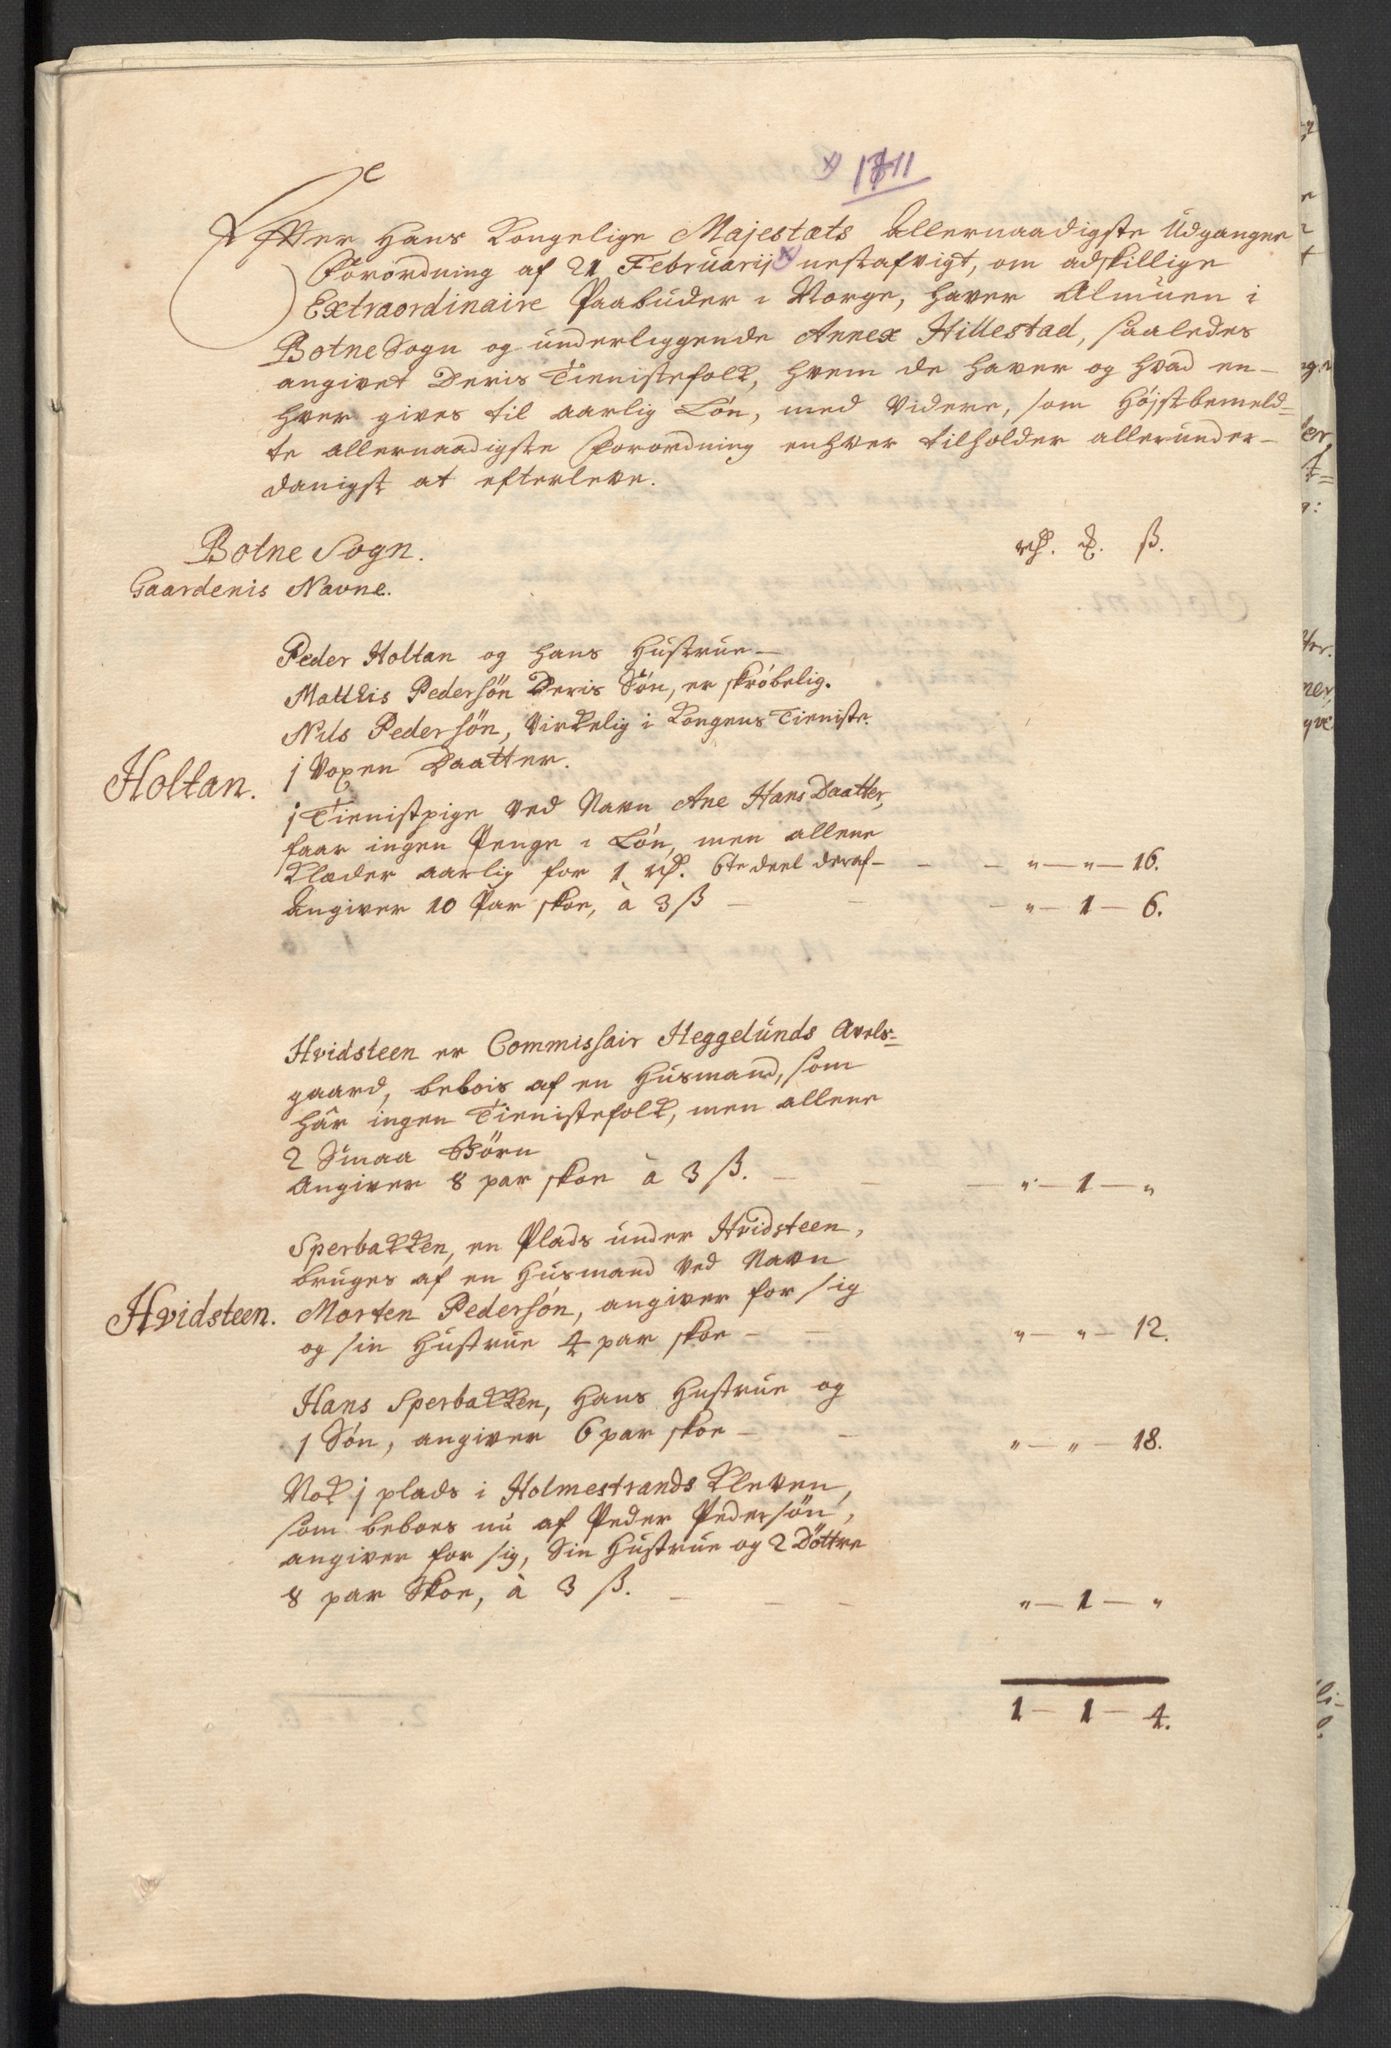 x) 1711
Efter Hans Kongelige Majestæts Allernaadigste Udgangne
Forordning af 21 Februarij x) nestafvigt, om adskillige
Extraordinaire Paabuder i Norge, haver Almuen i
Botne Sogn og underliggende Annex Hillestad, saaledes
angivet Deris Tienistefolk, hvem de haver og hvad en-
hver gives til aarlig Løn, med videre, som Højstbemeld=
te allernaadigste Forordning enhver tilholder allerunder-
danigst at efterleve.
Botne Sogn. rd. ₰. ß.
Gaardenis Navne.
Peder Holtan og hans Hustrue-
Mathis Pedersøn Deris Søn, er skrøbelig.
Nils Pedersøn, Virkelig i Kongens Tieniste.
j Voxen Daatter.
Holtan.
j Tienistpige Ved Navn Ane HansDaatter,
faar ingen Penge i Løn, men allene
Klæder aarlig for 1 rd. 6te deel deraf - - - „ - „ - 16.
Angiver 10 Par skoe, à 3 ß - - - „ - 1 - 6.
Hvidsteen er Commissair Heggelunds Avels=
gaard, bebois af en Husmand, som
hâr ingen Tienistefolk, men allene
2 Smaa Børn
Angiver 8 par skoe à 3 ß. - - - „ - 1 - „
Sperbakken, en Plads under Hvidsteen,
bruges af en Husmand Ved Navn
Hvidsteen. Morten Pedersøn, angiver for sig
og sin Hustrue 4 par skoe - - „ - „ - 12.
Hans Sperbakken, Hans Hustrue og
1 Søn, angiver 6 par skoe - - „ - „ - 18.
Nok j plads i Holmestrands Kleven,
som beboes nu af Peder Pedersøn,
angiver for sig, Sin Hustrue og 2 Døttre
8 par Skoe, à 3 ß. - - - „ - 1 - „
1 - 1 - 4.